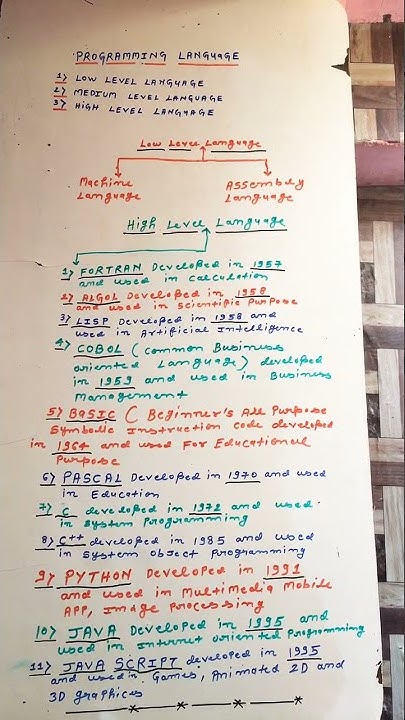 PROGRAMMING LANGUAGE
1) LOW LEVEL LANGUAGE
2) MEDIUM LEVEL LANGUAGE
3) HIGH LEVEL LANGUAGE
Low Level Language
Machine Language
Assembly Language
High Level Language
1) FORTRAN Developed in 1957
and used in calculation
2) ALGOL Developed in 1958
and used in Scientific Purpose
3) LISP Developed in 1958 and
used in Artificial Intelligence
4) COBOL (Common Business
oriented Language) developed
in 1959 and used in Business
Management
5) BASIC ( Beginner's All Purpose
Symbolic Instruction code developed
in 1964 and used For Educational
Purpose
6) PASCAL Developed in 1970 and used
in Education
7) C developed in 1972 and used
in System Programming
8) C++ developed in 1985 and used
in System object Programming
9) PYTHON Developed in 1991
and used in Multimedia Mobile
APP, Image Processing
10) JAVA Developed in 1995 and
used in Internet oriented Programming
11) JAVA SCRIPT developed in 1995
and used in Games, Animated 2D and
3D graphices